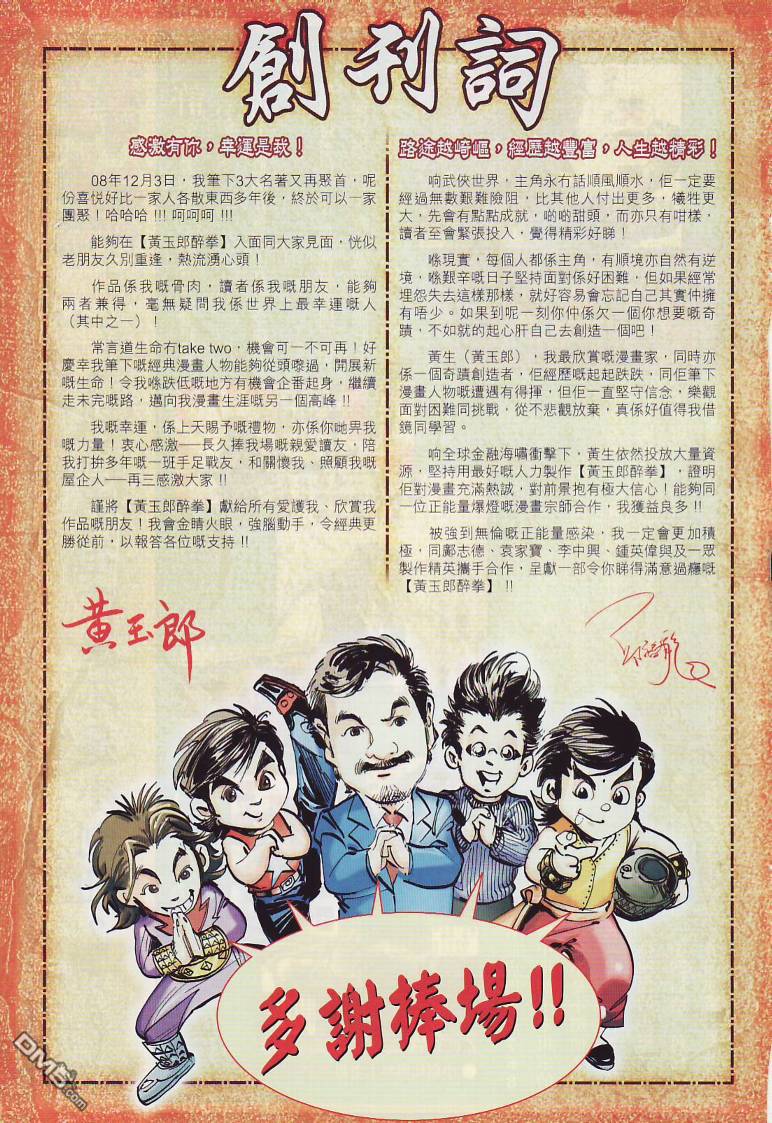 創刊詞
感激有你,幸運是我!
08年12月3日,我筆下3大名著又再聚首,呢
份喜悅好比一家人各散東西多年後,終於可以一家
團聚!哈哈哈 !!! 呵呵呵 !!!
能夠在【黃玉郎醉拳】入面同大家見面,恍似
老朋友久別重逢,熱流湧心頭!
作品係我嘅骨肉,讀者係我嘅朋友,能夠
兩者兼得,毫無疑問我係世界上最幸運嘅人
(其中之一)!
常言道生命冇take two,機會可一不可再!好
慶幸我筆下嘅經典漫畫人物能夠從頭嚟過,開展新
嘅生命!令我喺跌低嘅地方有機會企番起身,繼續
走未完嘅路,邁向我漫畫生涯嘅另一個高峰 !!
我嘅幸運,係上天賜予嘅禮物,亦係你哋畀我
嘅力量!衷心感激──長久捧我場嘅親愛讀友,陪
我打拚多年嘅一班手足戰友,和關懷我、照顧我嘅
屋企人──再三感激大家 !!
謹將【黃玉郎醉拳】獻給所有愛護我、欣賞我
作品嘅朋友!我會金睛火眼,強腦動手,令經典更
勝從前,以報答各位嘅支持 !!
黃玉郎
路途越崎嶇,經歷越豐富,人生越精彩!
响武俠世界,主角永冇話順風順水,佢一定要
經過無數艱難險阻,比其他人付出更多,犧牲更
大,先會有點點成就,啲啲甜頭,而亦只有咁樣,
讀者至會緊張投入,覺得精彩好睇!
喺現實,每個人都係主角,有順境亦自然有逆
境,喺艱辛嘅日子堅持面對係好困難,但如果經常
埋怨失去這樣那樣,就好容易會忘記自己其實仲擁
有唔少。如果到呢一刻你仲係欠一個你想要嘅奇
蹟,不如就的起心肝自己去創造一個吧!
黃生(黃玉郎),我最欣賞嘅漫畫家,同時亦
係一個奇蹟創造者,佢經歷嘅起起跌跌,同佢筆下
漫畫人物嘅遭遇有得揮,但佢一直堅守信念,樂觀
面對困難同挑戰,從不悲觀放棄,真係好值得我借
鏡同學習。
响全球金融海嘯衝擊下,黃生依然投放大量資
源,堅持用最好嘅人力製作【黃玉郎醉拳】,證明
佢對漫畫充滿熱誠,對前景抱有極大信心!能夠同
一位正能量爆燈嘅漫畫宗師合作,我獲益良多 !!
被強到無倫嘅正能量感染,我一定會更加積
極,同鄺志德、袁家寶、李中興、鍾英偉與及一眾
製作精英攜手合作,呈獻一部令你睇得滿意過癮嘅
【黃玉郎醉拳】 !!
多謝捧場!!
DM5.com